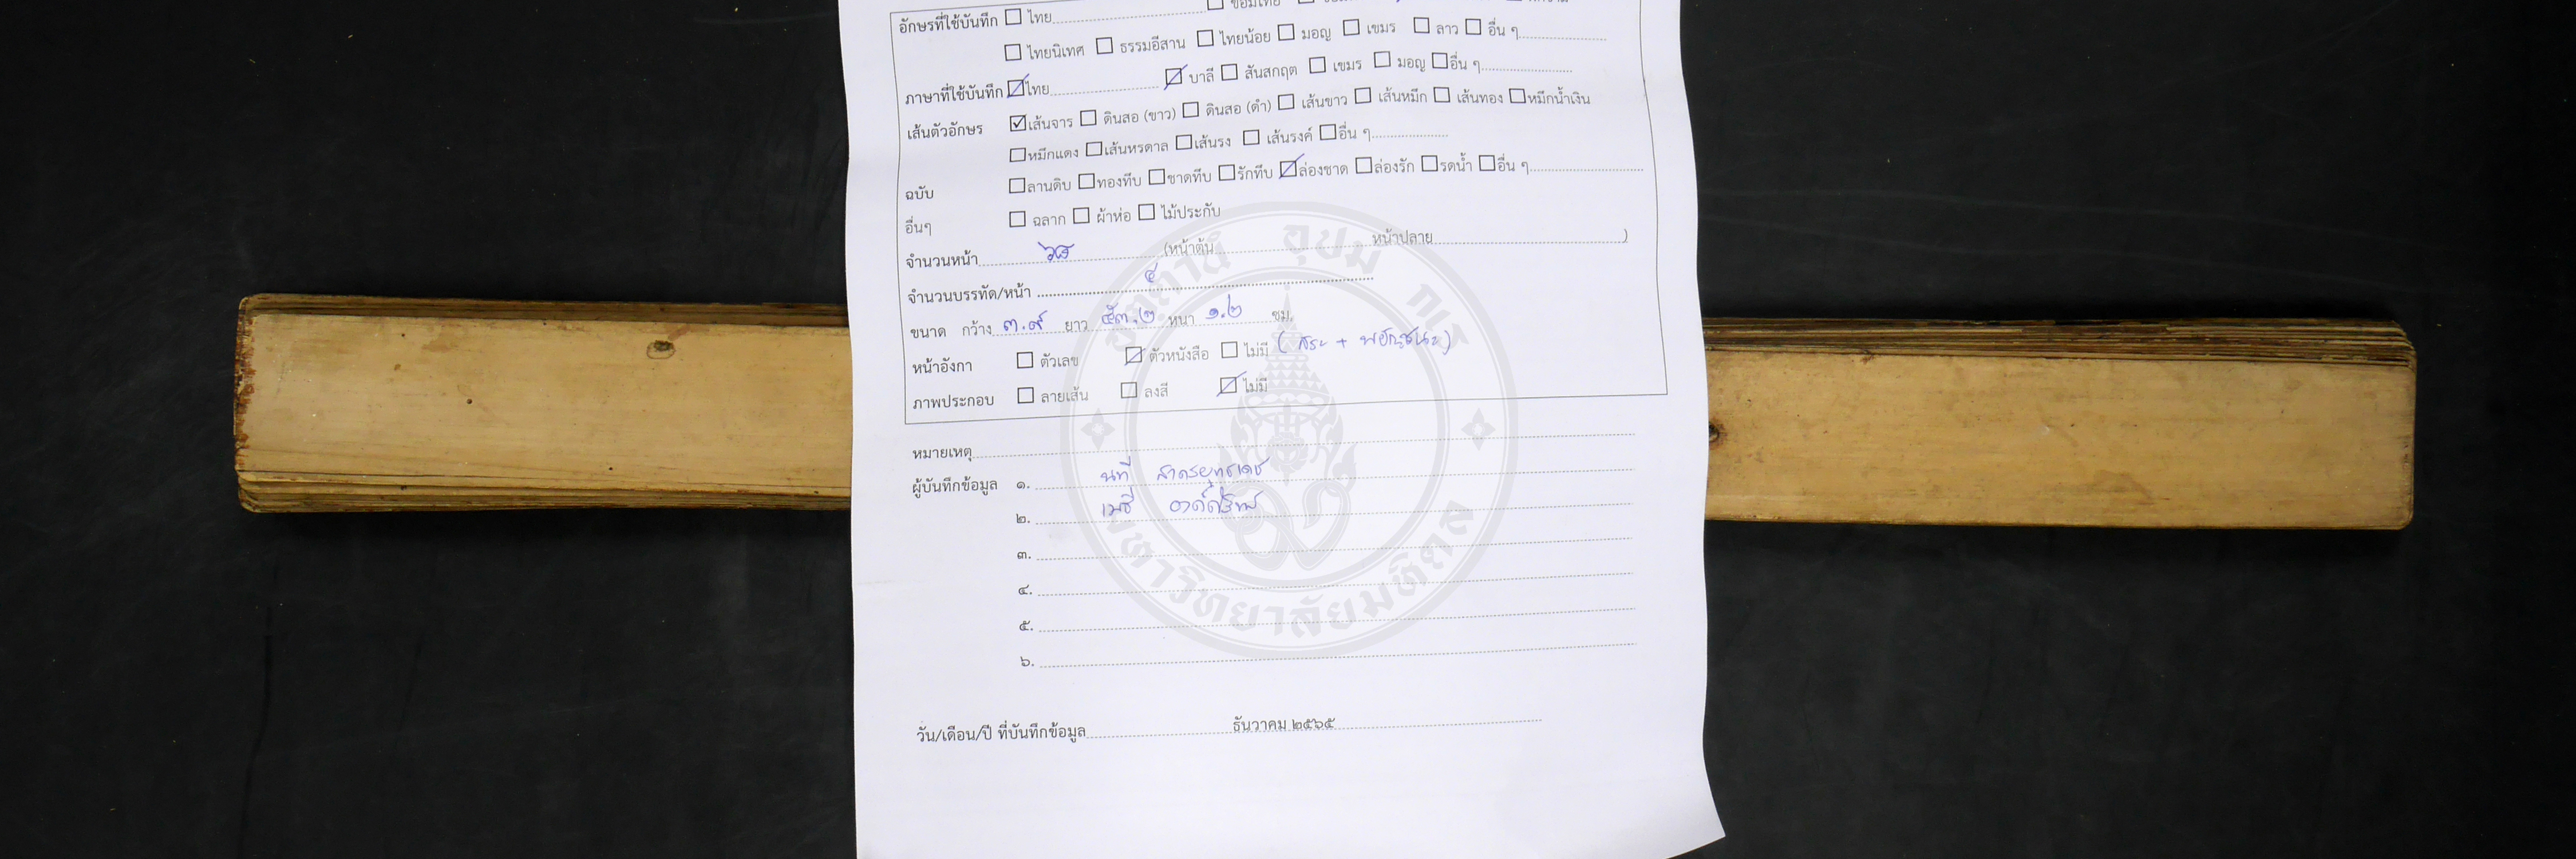 อักษรที่ใช้บันทึก ☐ ไทย ☐ ขอมไทย ☐
☐ ไทยนิเทศ ☐ ธรรมอีสาน ☐ ไทยน้อย ☐ มอญ ☐ เขมร ☐ ลาว ☐ อื่น ๆ
ภาษาที่ใช้บันทึก ☑ ไทย ☑ บาลี ☐ สันสกฤต ☐ เขมร ☐ มอญ ☐ อื่น ๆ
เส้นตัวอักษร ☑ เส้นจาร ☐ ดินสอ (ขาว) ☐ ดินสอ (ดำ) ☐ เส้นขาว ☐ เส้นหมึก ☐ เส้นทอง ☐ หมึกน้ำเงิน
☐ หมึกแดง ☐ เส้นหรดาล ☐ เส้นรง ☐ เส้นรงค์ ☐ อื่น ๆ
ฉบับ ☐ ลานดิบ ☐ ทองทึบ ☐ ชาดทึบ ☐ รักทึบ ☑ ล่องชาด ☐ ล่องรัก ☐ รดน้ำ ☐ อื่น ๆ
อื่นๆ ☐ ฉลาก ☐ ผ้าห่อ ☐ ไม้ประกับ
จำนวนหน้า (หน้าต้น หน้าปลาย )
จำนวนบรรทัด/หน้า ๕
ขนาด กว้าง ๓.๙ ยาว ๕๓.๒ หนา ๑.๒ ซม.
หน้าอังกา ☐ ตัวเลข ☑ ตัวหนังสือ ☐ ไม่มี (สระ + พยัญชนะ)
ภาพประกอบ ☐ ลายเส้น ☐ ลงสี ☑ ไม่มี
หมายเหตุ
ผู้บันทึกข้อมูล ๑. นที
๒. เมธี
๓.
๔.
๕.
๖.
วัน/เดือน/ปี ที่บันทึกข้อมูล ธันวาคม ๒๕๖๕
มหาวิทยาลัยมหิดล